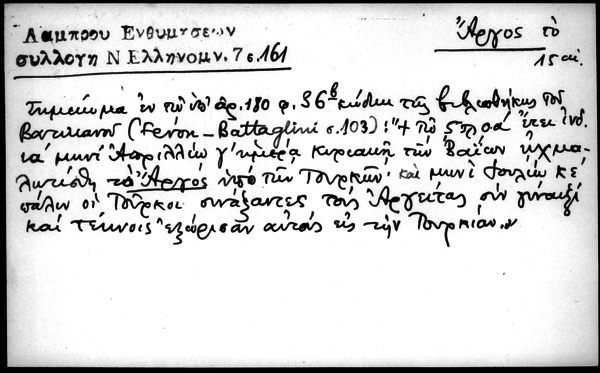 Λαμπρου Ενθυμησεων
συλλογη Ν Ελληνομν. 7 σ. 161
Ἄργος τὸ
15 αἰ.
Σημείωμα ἐν τῷ ὑπ' ἀρ. 180 φ. 36β κώδικι τῆς βιβλιοθήκης τοῦ
Βατικανοῦ (Feron - Battaglini σ. 103): "+ τῷ ἔτει ἰνδ.
ια' μηνὶ Ἀπριλλίῳ γ' ἡμέρᾳ κυριακῇ τῶν Βαΐων ἠχμα-
λωτίσθη τὸ Ἄργος ὑπὸ τῶν Τουρκῶν· καὶ μηνὶ Ἰουλίῳ κε'
πάλιν οἱ Τοῦρκοι συνάξαντες τοὺς Ἀργείτας σὺν γυναιξὶ
καὶ τέκνοις ἐξώρισαν αὐτοὺς εἰς τὴν Τουρκίαν."